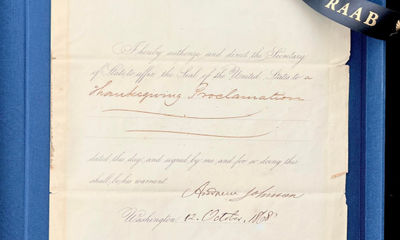 RAAB
I hereby authorize and direct the Secretary
of State to affix the Seal of the United States to a
Thanksgiving Proclamation
dated this day, and signed by me, and for so doing this
shall be his warrant.
Andrew Johnson
Washington 12 October, 1868